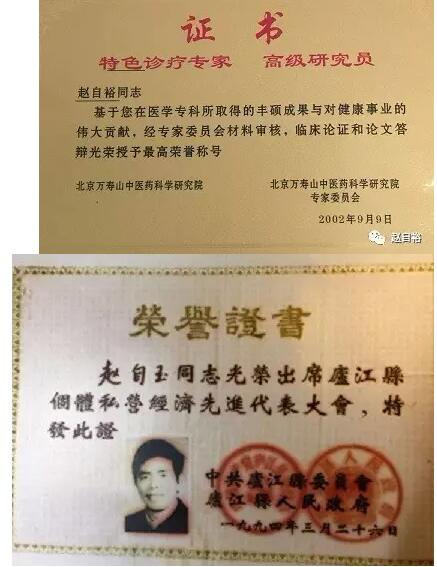 证书
特色诊疗专家 高级研究员
赵自裕同志
基于您在医学专科所取得的丰硕成果与对健康事业的
伟大贡献，经专家委员会材料审核，临床论证和论文答
辩光荣授予最高荣誉称号
北京万寿山中医药科学研究院 北京万寿山中医药科学研究院
专家委员会
2002年9月9日
赵自裕
榮譽證書
赵自玉同志光榮出席廬江縣
個體私營經濟先進代表大會，特
發此證
中共廬江縣委員會
廬江縣人民政府
一九九四年三月二十六日